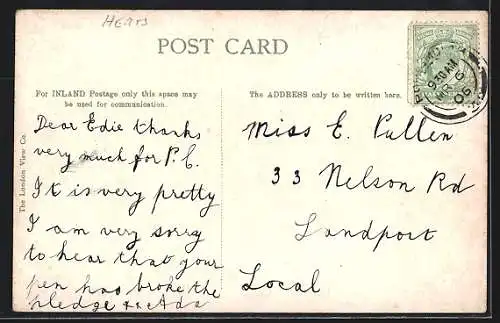 HERTS
POST CARD
For INLAND Postage only this space may
be used for communication.
The ADDRESS only to be written here.
The London View Co.
Dear Edie thanks
very much for P.C.
It is very pretty
I am very sorry
to hear that your
pen has broke the
pledge xx Ada
Miss E. Pullen
33 Nelson Rd
Landport
Local
9.30 AM
MR 6
06